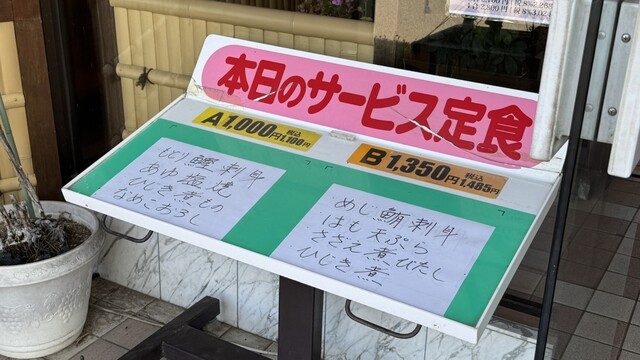 本日のサービス定食
A1,000円 税込1,100円
もどり鰹刺身
あゆ塩焼
ひじき煮もの
なめこおろし
B1,350円 税込1,485円
めじ鮪刺身
はも天ぷら
さざえ煮びたし
ひじき煮